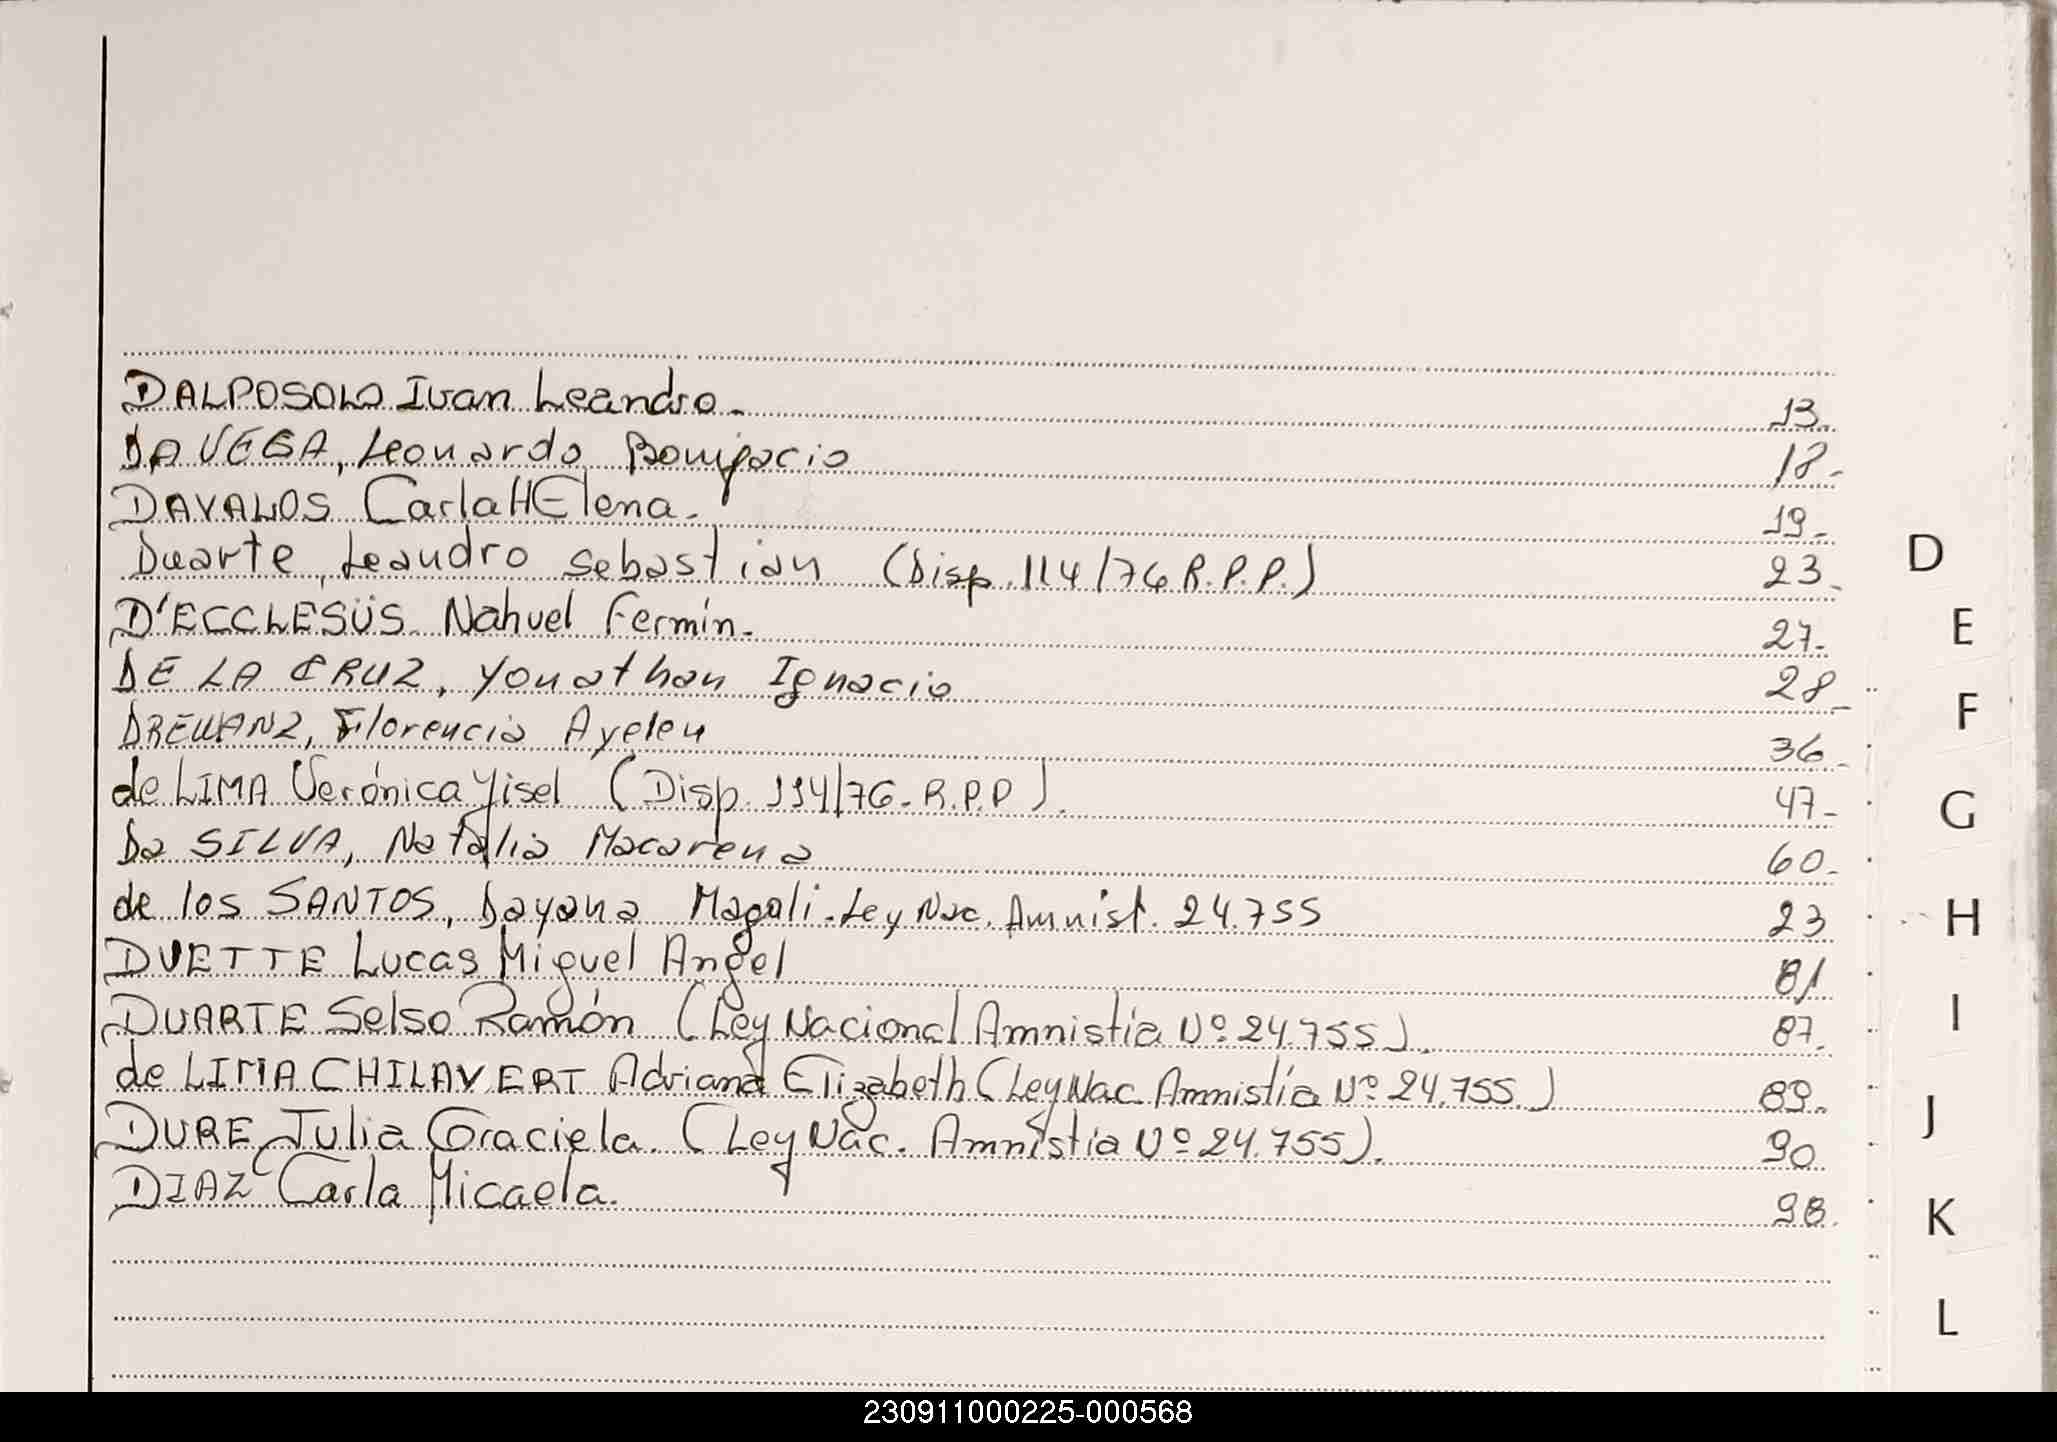 DALPOSOLO Ivan Leandro. 13.
DA VEGA, Leonardo Bonifacio 18-
DAVALOS Carla HElena. 19-
Duarte, Leandro Sebastian (Disp. 114/76 R.P.P.) 23-
D'ECCLESÜS Nahuel Fermín. 27-
DE LA CRUZ, Yonathan Ignacio 28-
Florencia Ayelen 36-
de LIMA Verónica Yisel (Disp. 114/76- R.P.P). 47-
Da SILVA, Natalia Macarena 60-
de los SANTOS, Dayana Magali. Ley Nac. Amnist. 24.755 23
DUETTE Lucas Miguel Angel 81
DUARTE Selso Ramón (Ley Nacional Amnistía Nº 24.755). 87.
de LIMA CHILAVERT Adriana Elizabeth (Ley Nac. Amnistía Nº 24.755.) 89.
DURE Julia Graciela. (Ley Nac. Amnistia Nº 24.755). 90
DIAZ Carla Micaela. 98.
D
E
F
G
H
I
J
K
L
230911000225-000568